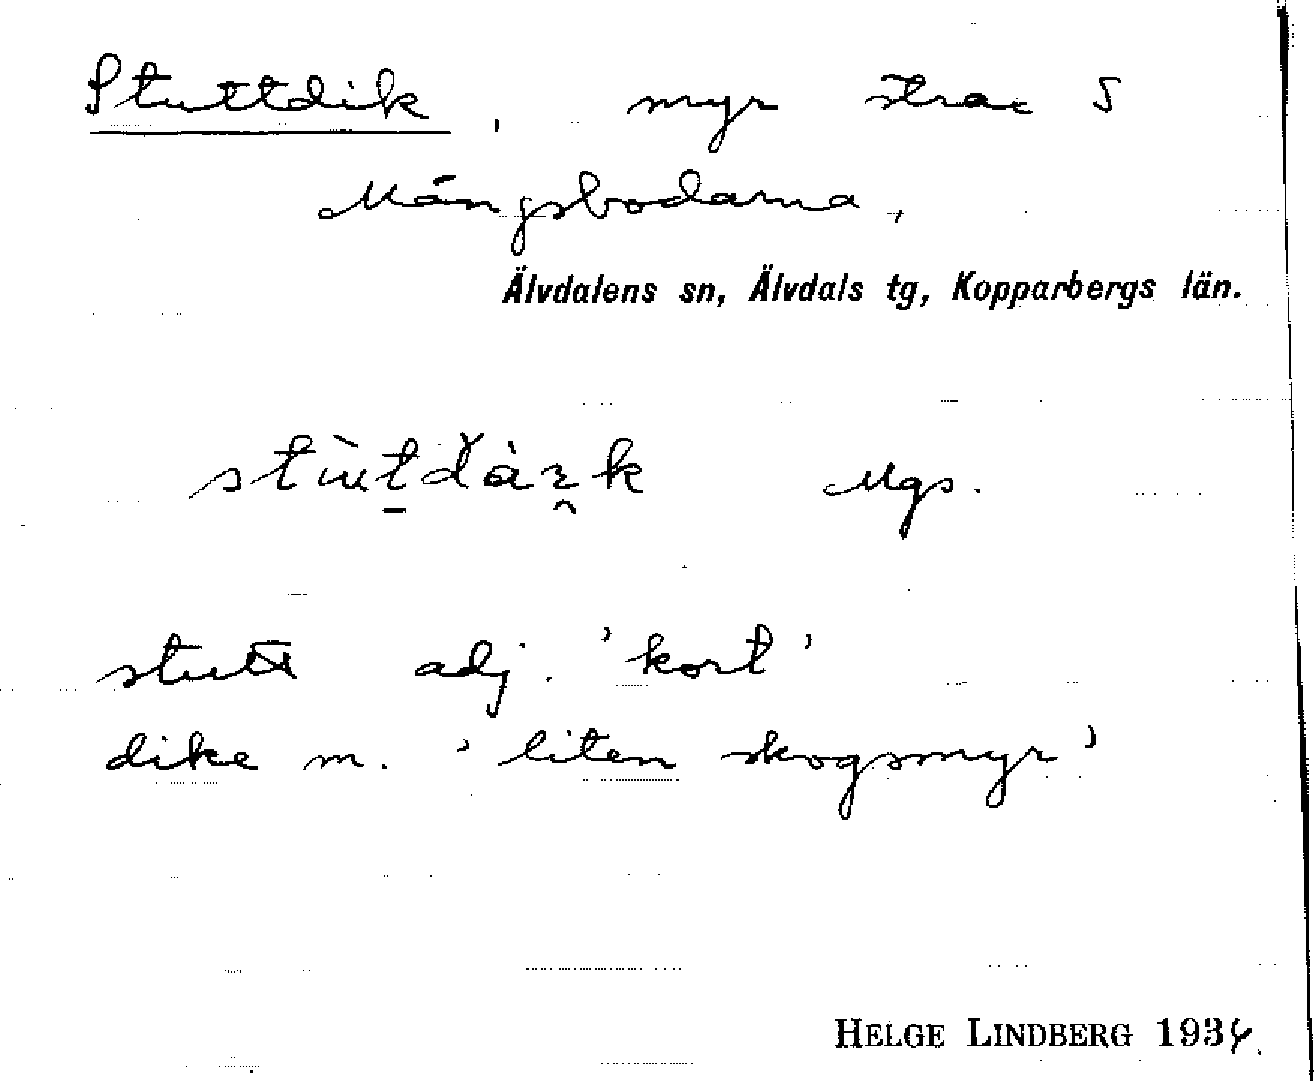 Stuttdik, myr strax S
Mångsbodarna,
Älvdalens sn, Älvdals tg, Kopparbergs län.
Mgs.
stutt adj. 'kort'
dike m. 'liten skogsmyr'
HELGE LINDBERG 1934.